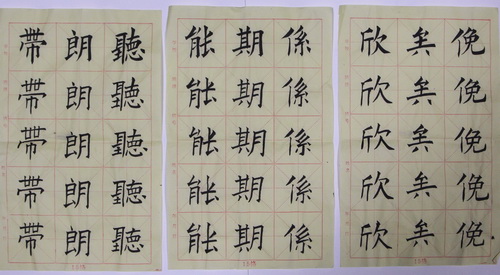 帶朗聽
帶朗聽
帶朗聽
帶朗聽
帶朗聽
能期係
能期係
能期係
能期係
能期係
欣矣俛
欣矣俛
欣矣俛
欣矣俛
欣矣俛